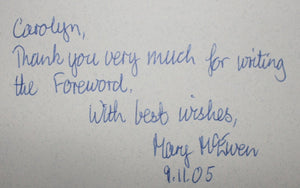 Carolyn,
Thank you very much for writing
the Foreword.
With best wishes,
Mary McEwen
9.11.05